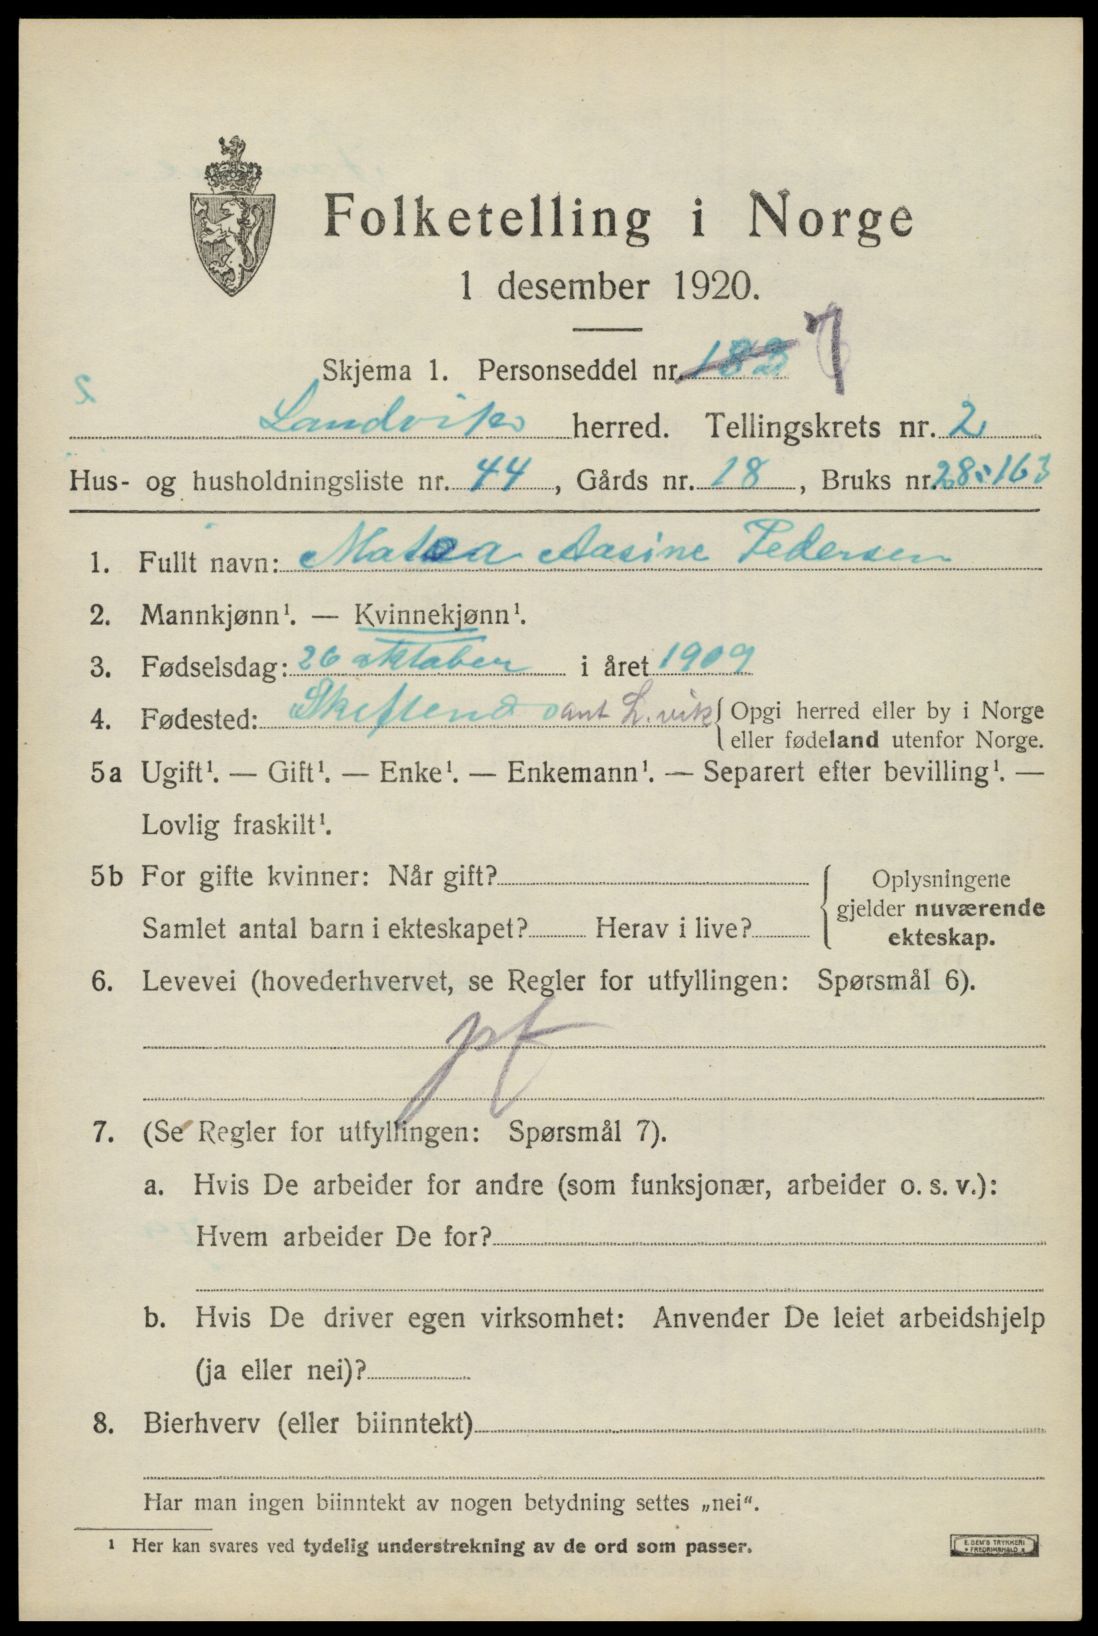 Folketelling i Norge
1 desember 1920.
Skjema 1. Personseddel nr. 183 7
Landvik herred. Tellingskrets nr. 2
Hus- og husholdningsliste nr. 44, Gårds nr. 18, Bruks nr. 28:163
1. Fullt navn: Matea Aasine Pedersen
2. Mannkjønn¹. — Kvinnekjønn¹.
3. Fødselsdag: 26 oktober i året 1909
4. Fødested: ant L.vik { Opgi herred eller by i Norge
eller fødeland utenfor Norge.
5a Ugift¹. — Gift¹. — Enke¹. — Enkemann¹. — Separert efter bevilling¹. —
Lovlig fraskilt¹.
5b For gifte kvinner: Når gift? { Oplysningene
gjelder nuværende
Samlet antal barn i ekteskapet? Herav i live? ekteskap.
6. Levevei (hovederhvervet, se Regler for utfyllingen: Spørsmål 6).
pf
7. (Se Regler for utfyllingen: Spørsmål 7).
a. Hvis De arbeider for andre (som funksjonær, arbeider o. s. v.):
Hvem arbeider De for?
b. Hvis De driver egen virksomhet: Anvender De leiet arbeidshjelp
(ja eller nei)?
8. Bierhverv (eller biinntekt)
Har man ingen biinntekt av nogen betydning settes „nei“.
¹ Her kan svares ved tydelig understrekning av de ord som passer.
E. SEM'S TRYKKERI
FREDRIKSHALD